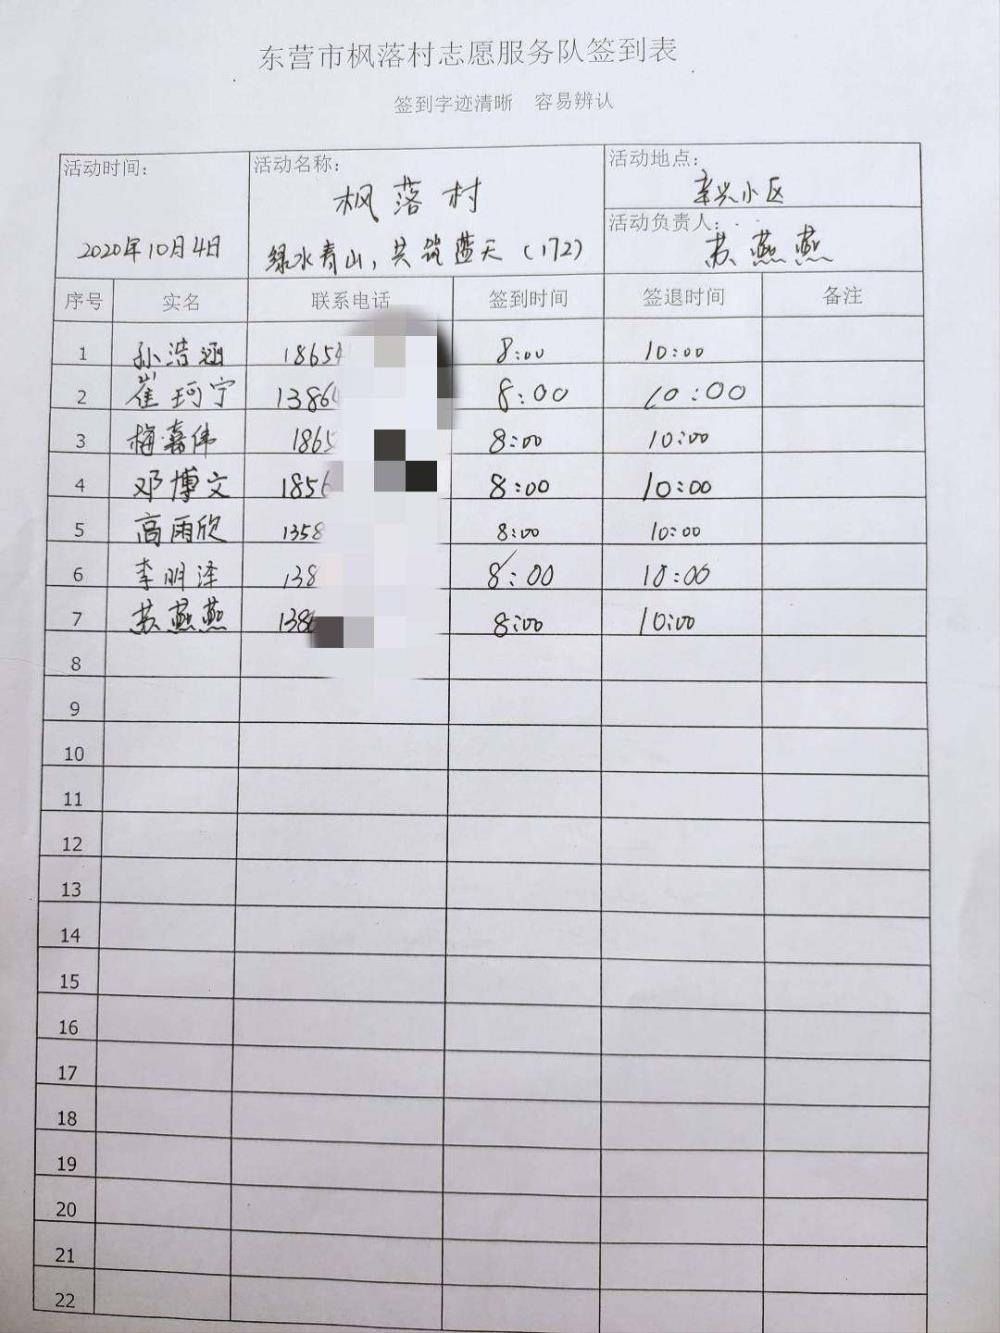 东营市枫落村志愿服务队签到表
签到字迹清晰 容易辨认
活动时间: 活动名称: 活动地点:
枫落村 辛兴小区
活动负责人:
2020年10月4日 绿水青山,共筑蓝天(172) 苏燕燕
序号 实名 联系电话 签到时间 签退时间 备注
1 孙浩涵 18654 8:00 10:00
2 崔珂宁 1386 8:00 10:00
3 梅嘉伟 1865 8:00 10:00
4 邓博文 1856 8:00 10:00
5 高雨欣 1358 8:00 10:00
6 李明泽 138 8:00 10:00
7 苏燕燕 138 8:00 10:00
8
9
10
11
12
13
14
15
16
17
18
19
20
21
22